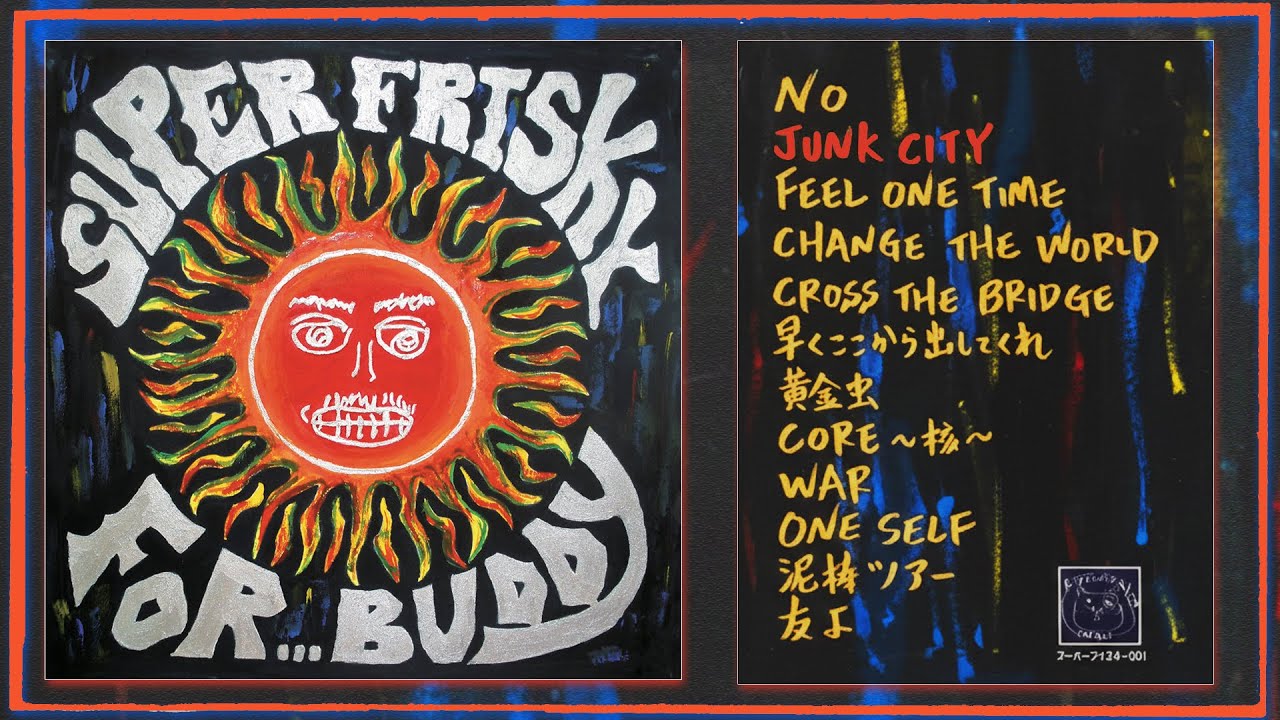 SUPER FRISKY
FOR... BUDDY
NO
JUNK CITY
FEEL ONE TIME
CHANGE THE WORLD
CROSS THE BRIDGE
早くここから出してくれ
黄金虫
CORE～核～
WAR
ONE SELF
泥棒ツアー
友よ